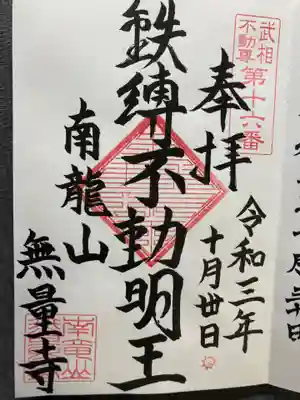 武相
不動尊
第十六番
奉拝
令和三年
十月卅日
鉄縛不動明王
南龍山
無量寺
南竜山